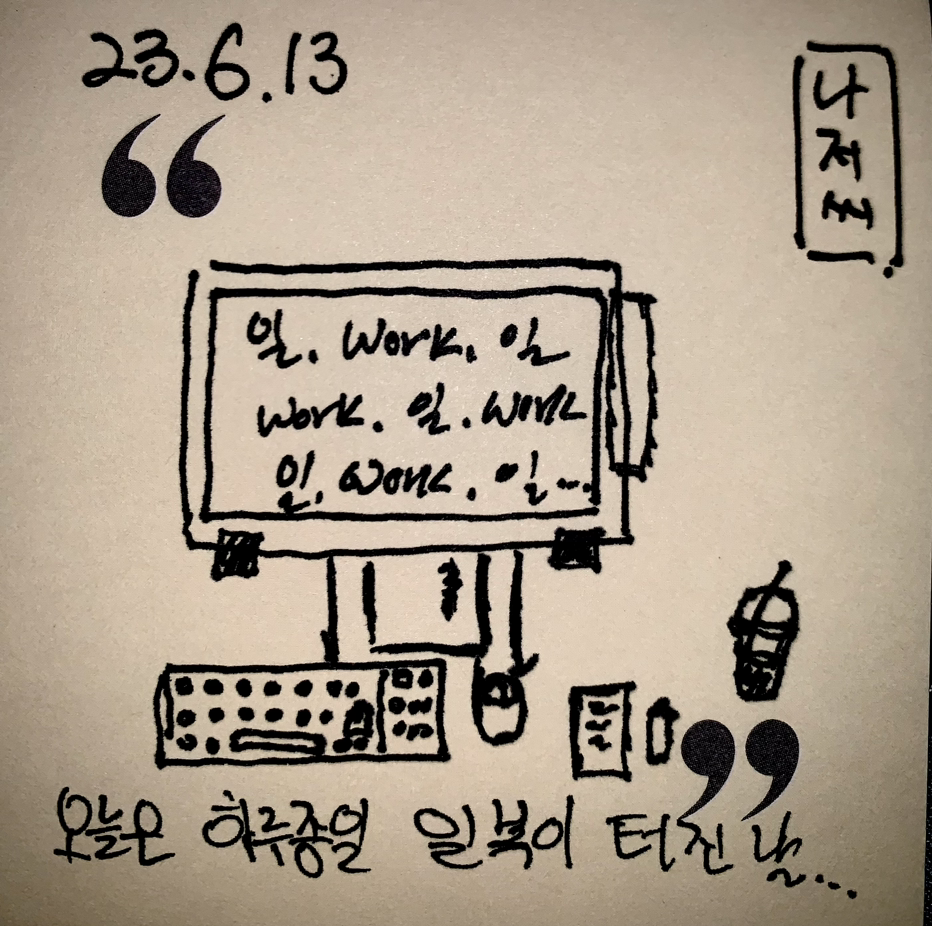 23.6.13
나
저
쩌
“
일. work. 일
work. 일. work
일. work. 일...
”
오늘은 하루종일 일복이 터진 날...